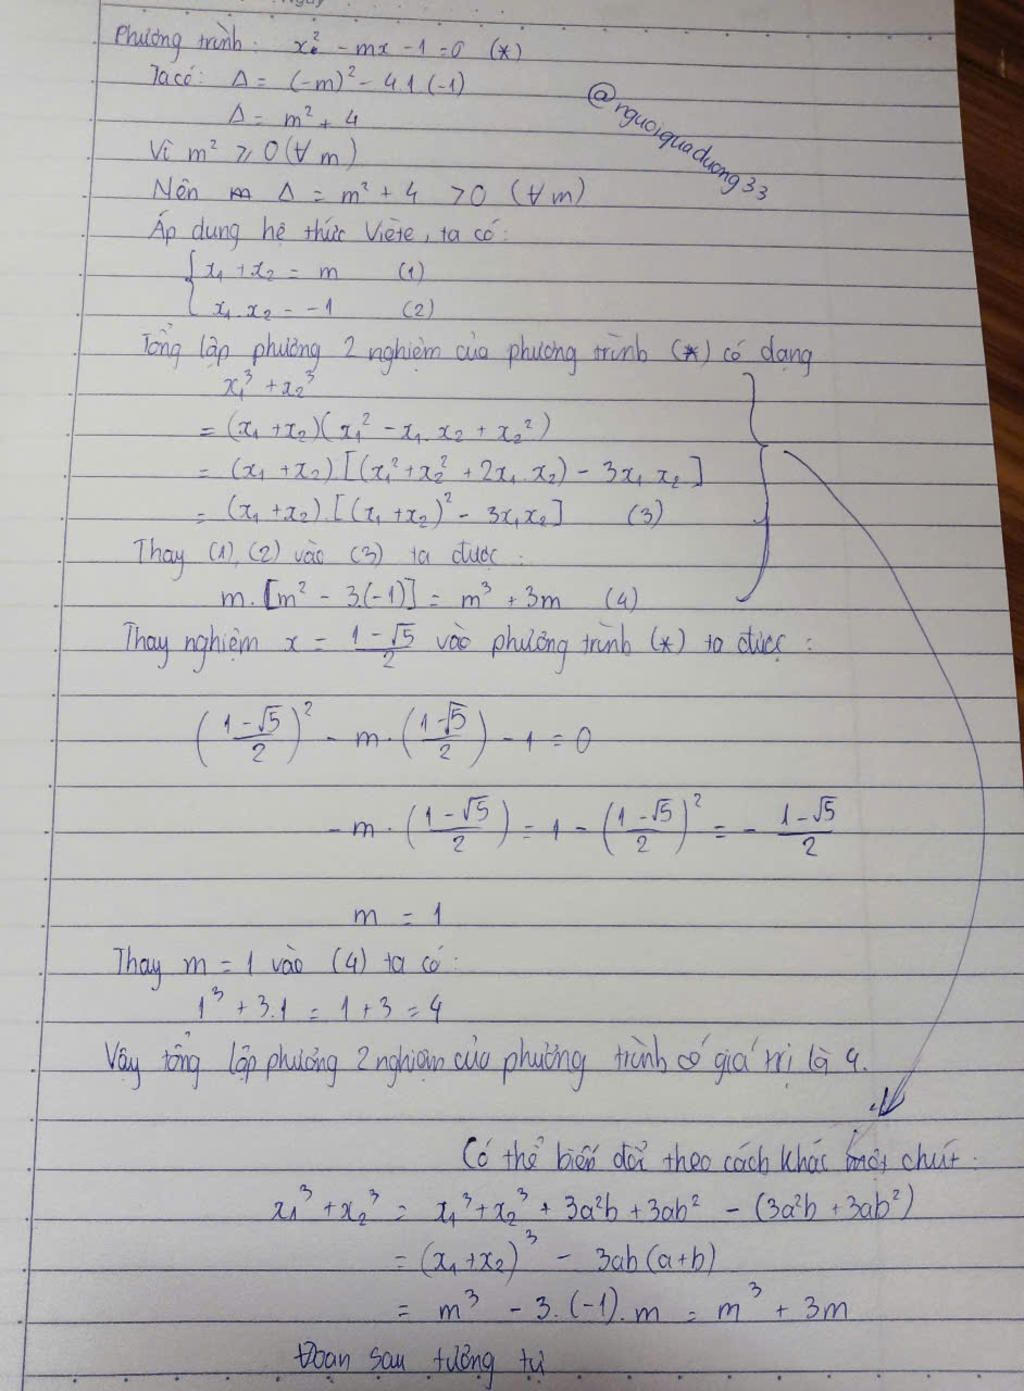 Phương trình: x² - mx - 1 = 0 (*)
Ta có: Δ = (-m)² - 4.1(-1)
@nguoiquaduong33
Δ = m² + 4
Vì m² ⩾ 0 (∀ m)
Nên Δ = m² + 4 > 0 (∀ m)
Áp dụng hệ thức Viète, ta có:
{ x₁ + x₂ = m (1)
x₁.x₂ = -1 (2)
Tổng lập phương 2 nghiệm của phương trình (*) có dạng
x₁³ + x₂³
= (x₁ + x₂)(x₁² - x₁.x₂ + x₂²)
= (x₁ + x₂).[(x₁² + x₂² + 2x₁.x₂) - 3x₁x₂]
= (x₁ + x₂).[(x₁ + x₂)² - 3x₁x₂] (3)
Thay (1), (2) vào (3) ta được:
m.[m² - 3.(-1)] = m³ + 3m (4)
Thay nghiệm x = (1-√5)/2 vào phương trình (*) ta được:
((1-√5)/2)² - m.((1-√5)/2) - 1 = 0
-m.((1-√5)/2) = 1 - ((1-√5)/2)² = - (1-√5)/2
m = 1
Thay m = 1 vào (4) ta có:
1³ + 3.1 = 1 + 3 = 4
Vậy tổng lập phương 2 nghiệm của phương trình có giá trị là 4.
Có thể biến đổi theo cách khác một chút:
x₁³ + x₂³ = x₁³ + x₂³ + 3a²b + 3ab² - (3a²b + 3ab²)
= (x₁ + x₂)³ - 3ab(a+b)
= m³ - 3.(-1).m = m³ + 3m
Đoạn sau tương tự